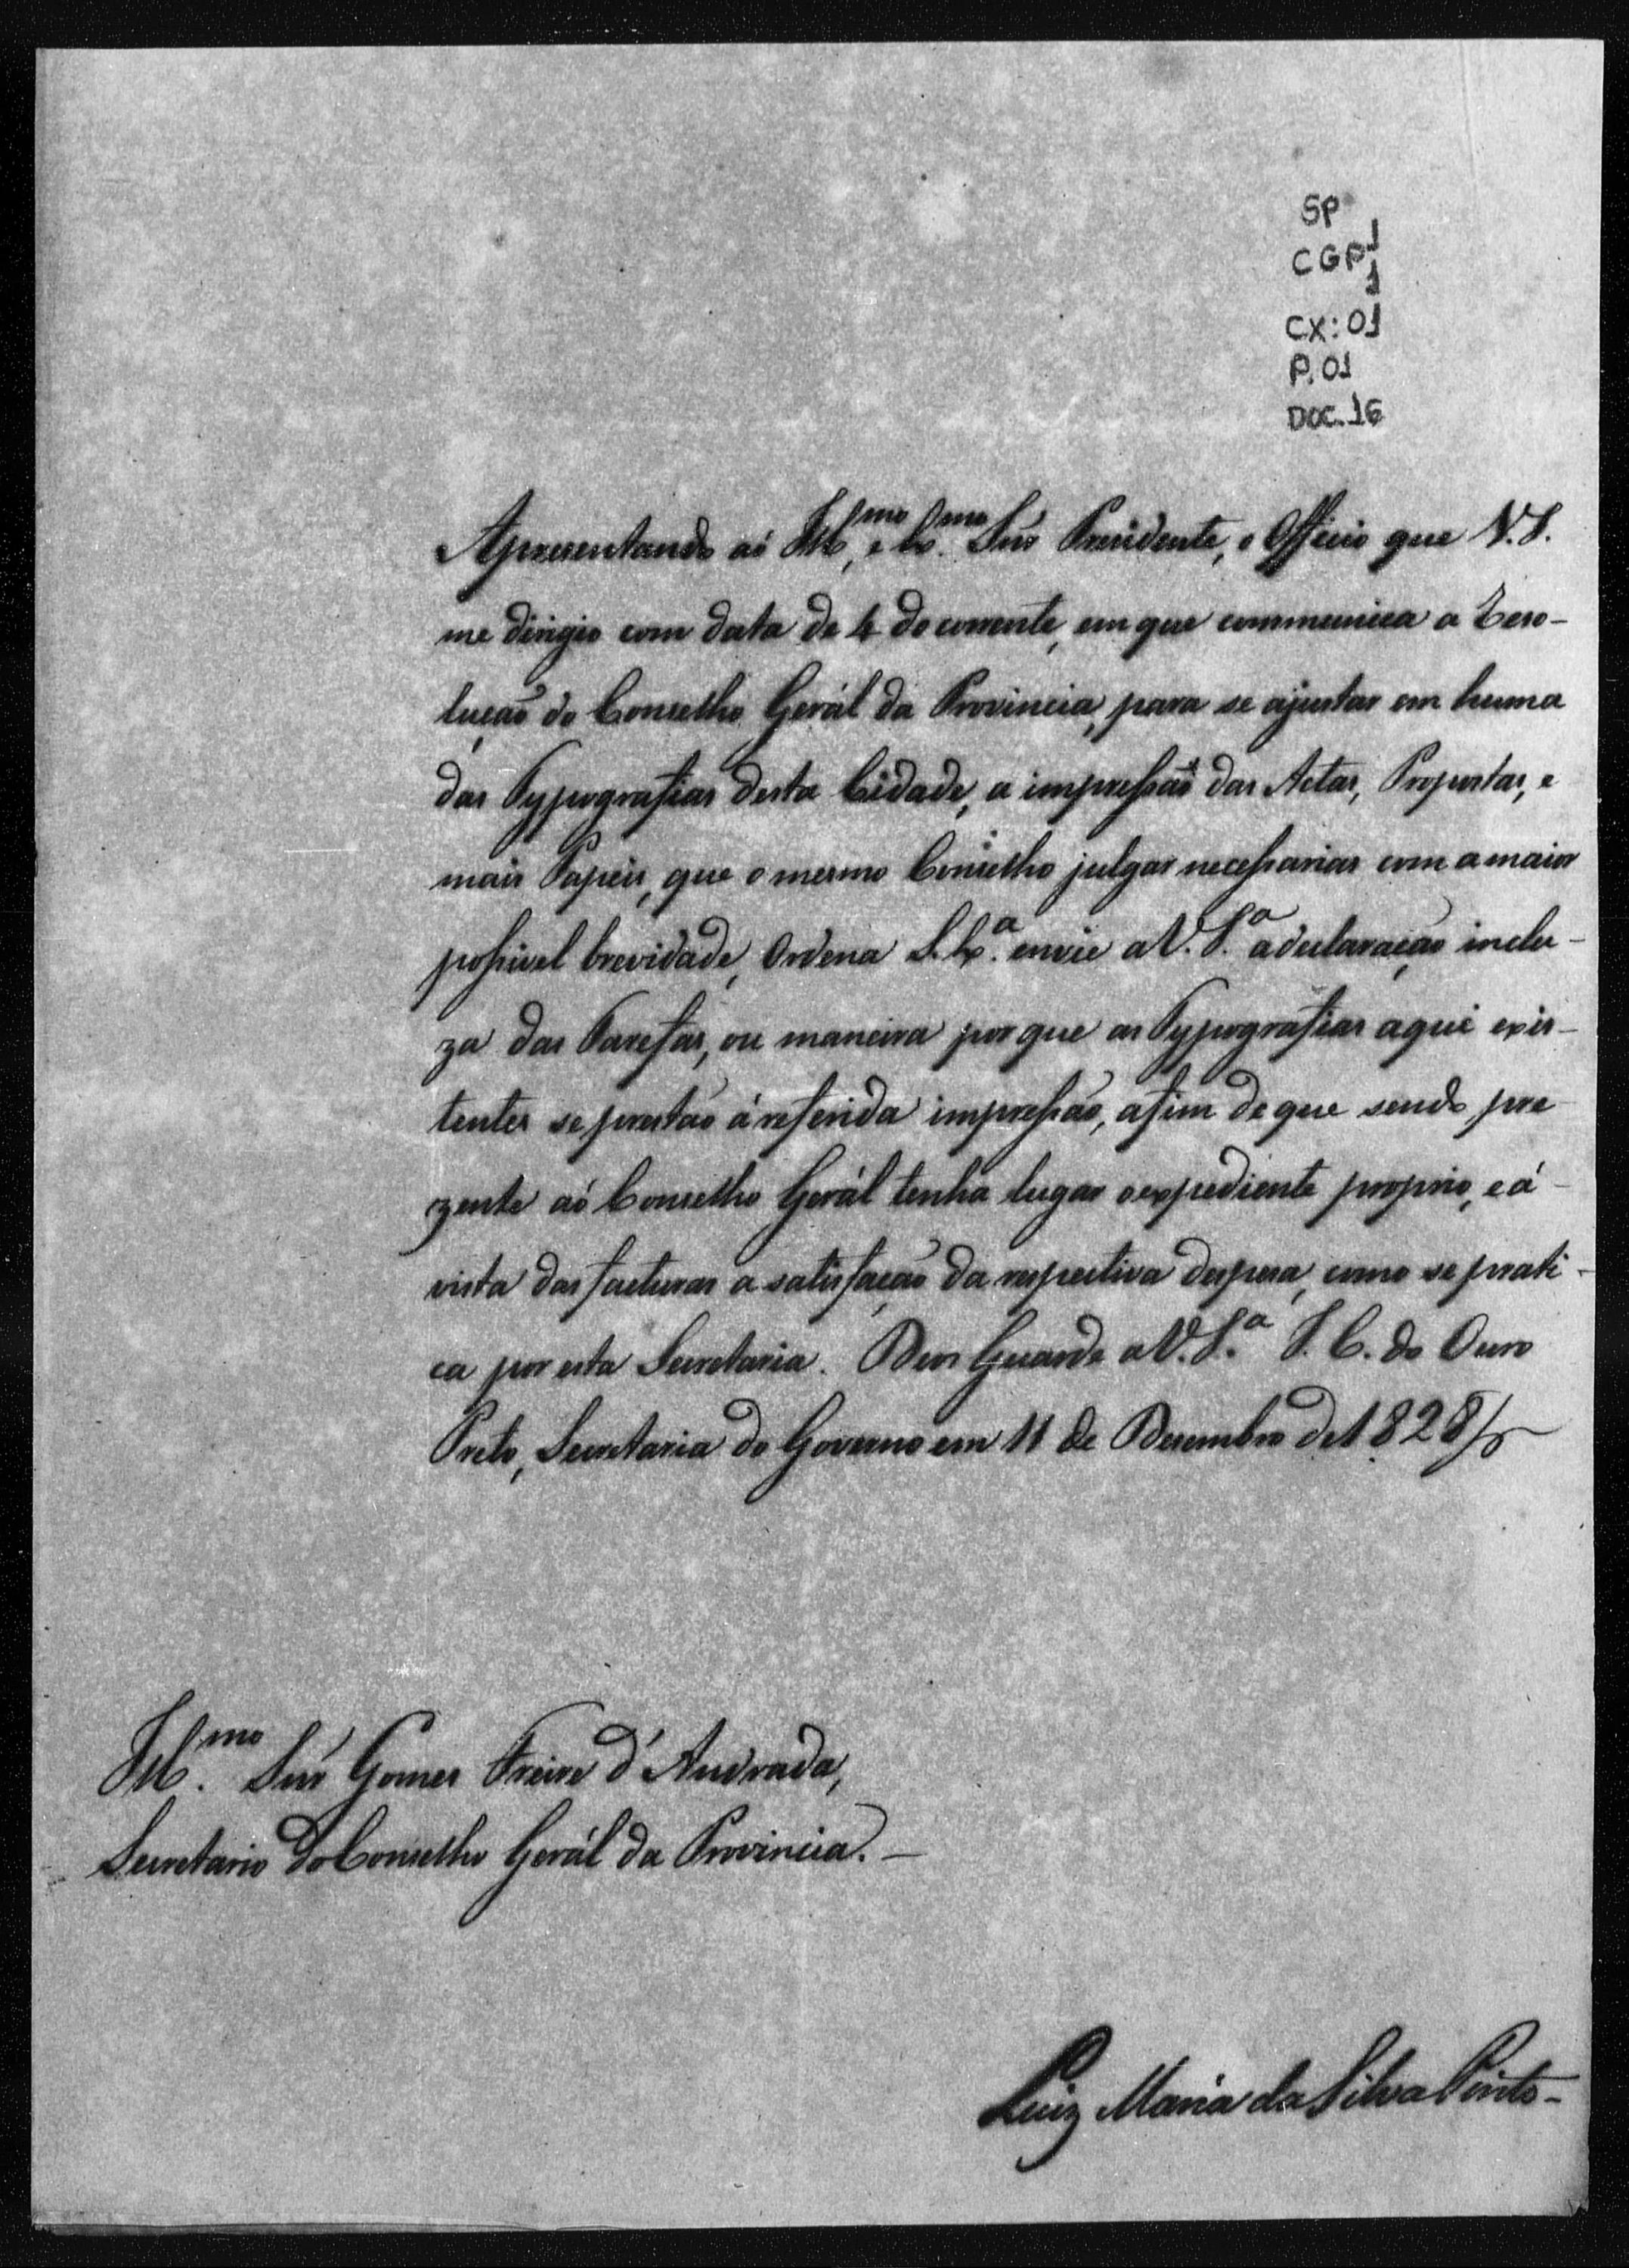 SP
CGP 1
1
CX: 01
P. 01
DOC. 16
Apresentando aó Ill.mo, e Ex.mo Snr̃ Presidente, o Officio que V. S.
me dirigio com data de 4 do corrente, em que communica a Reso-
lução do Conselho Gerál da Provincia, para se ajustar em huma
das Typografias desta Cidade, a impressaõ das Actas, Propostas, e
mais Papeis, que o mesmo Conselho julgar necessarias com a maior
possivel brevidade, Ordena S. Ex.a envie a V. S.a a declaração inclu-
za das Tarefas, ou maneira por que as Typografias aqui exis-
tentes se prestão á referida impressão, afim de que sendo pre
zente aó Conselho Gerál tenha lugar o expediente proprio, e á
vista das facturas a satisfação da respectiva despesa, como se prati-
ca por esta Secretaria. Deos Guarde a V. S.a I. C. do Ouro
Preto, Secretaria do Governo em 11 de Desembro de 1828
Ill.mo Snr̃ Gomes Freire d'Andrada,
Secretario do Conselho Gerál da Provincia. —
Luiz Maria da Silva Pinto -